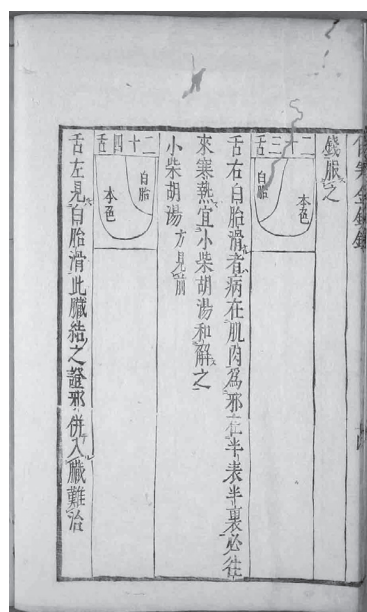 傷寒金鏡錄
錢服之
二十三舌
本色
白胎
舌右白胎滑者病在肌肉爲邪在半表半裏必往
來寒熱宜小柴胡湯和解之
小柴胡湯 方見前
二十四舌
白胎
本色
舌左見白胎滑此臟結之證邪併入臟難治